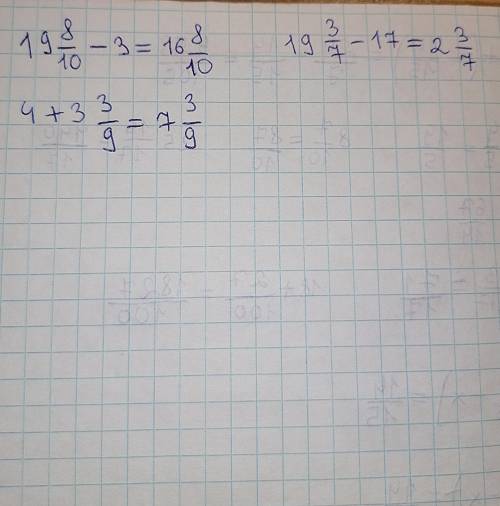 19 8/10 − 3 = 16 8/10
19 3/7 − 17 = 2 3/7
4 + 3 3/9 = 7 3/9